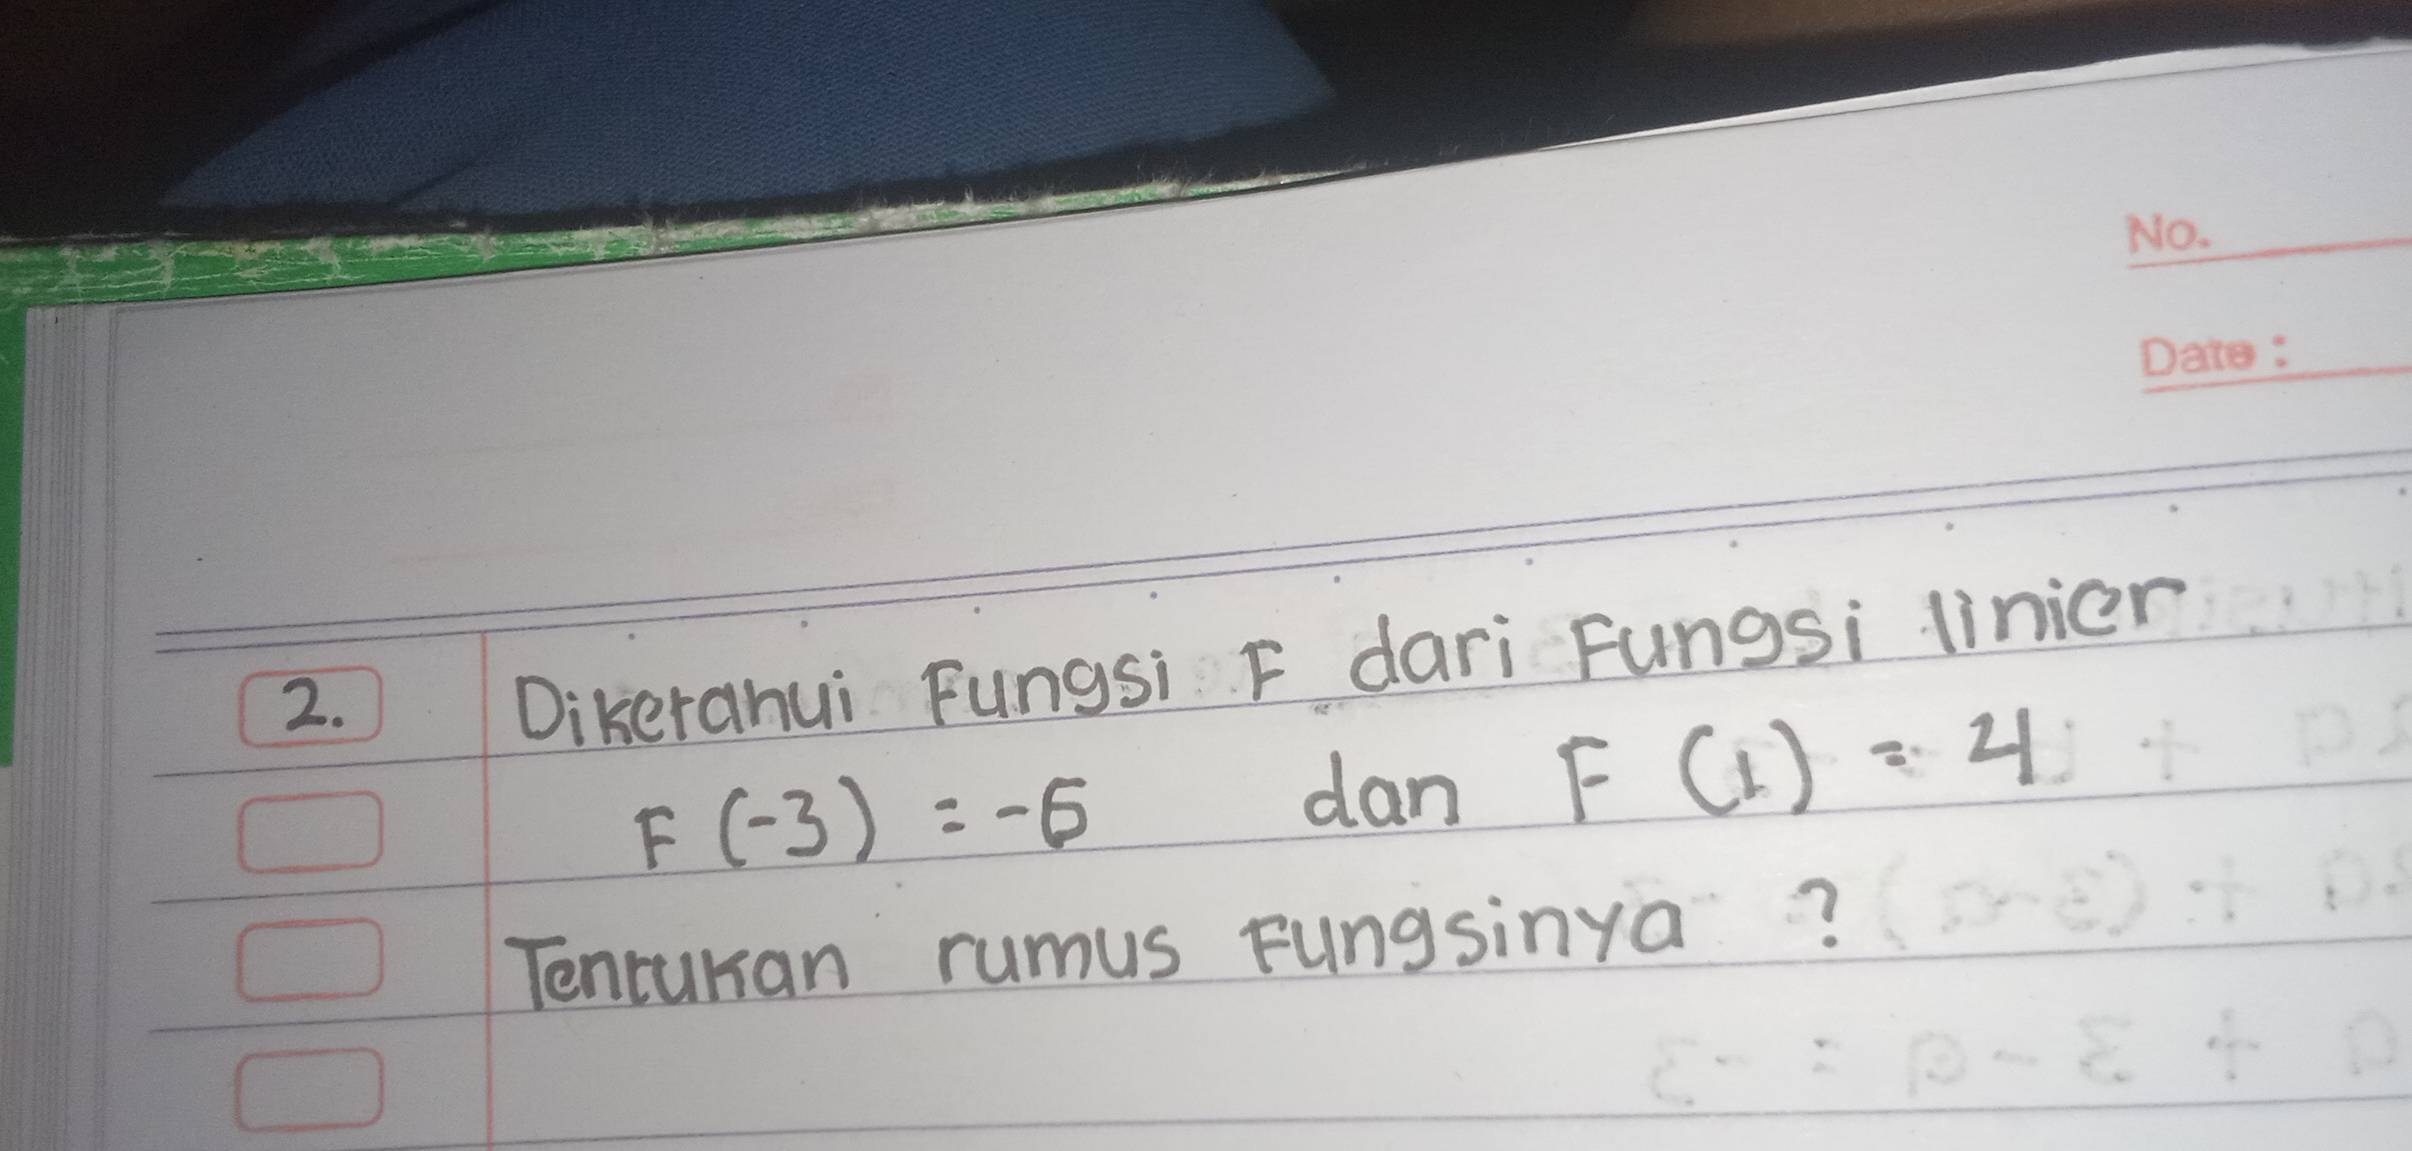 No.
Date :
2. Diketahui Fungsi F dari Fungsi linier
F (-3) = -6 dan F (1) = 4
Tentukan rumus Fungsinya ?